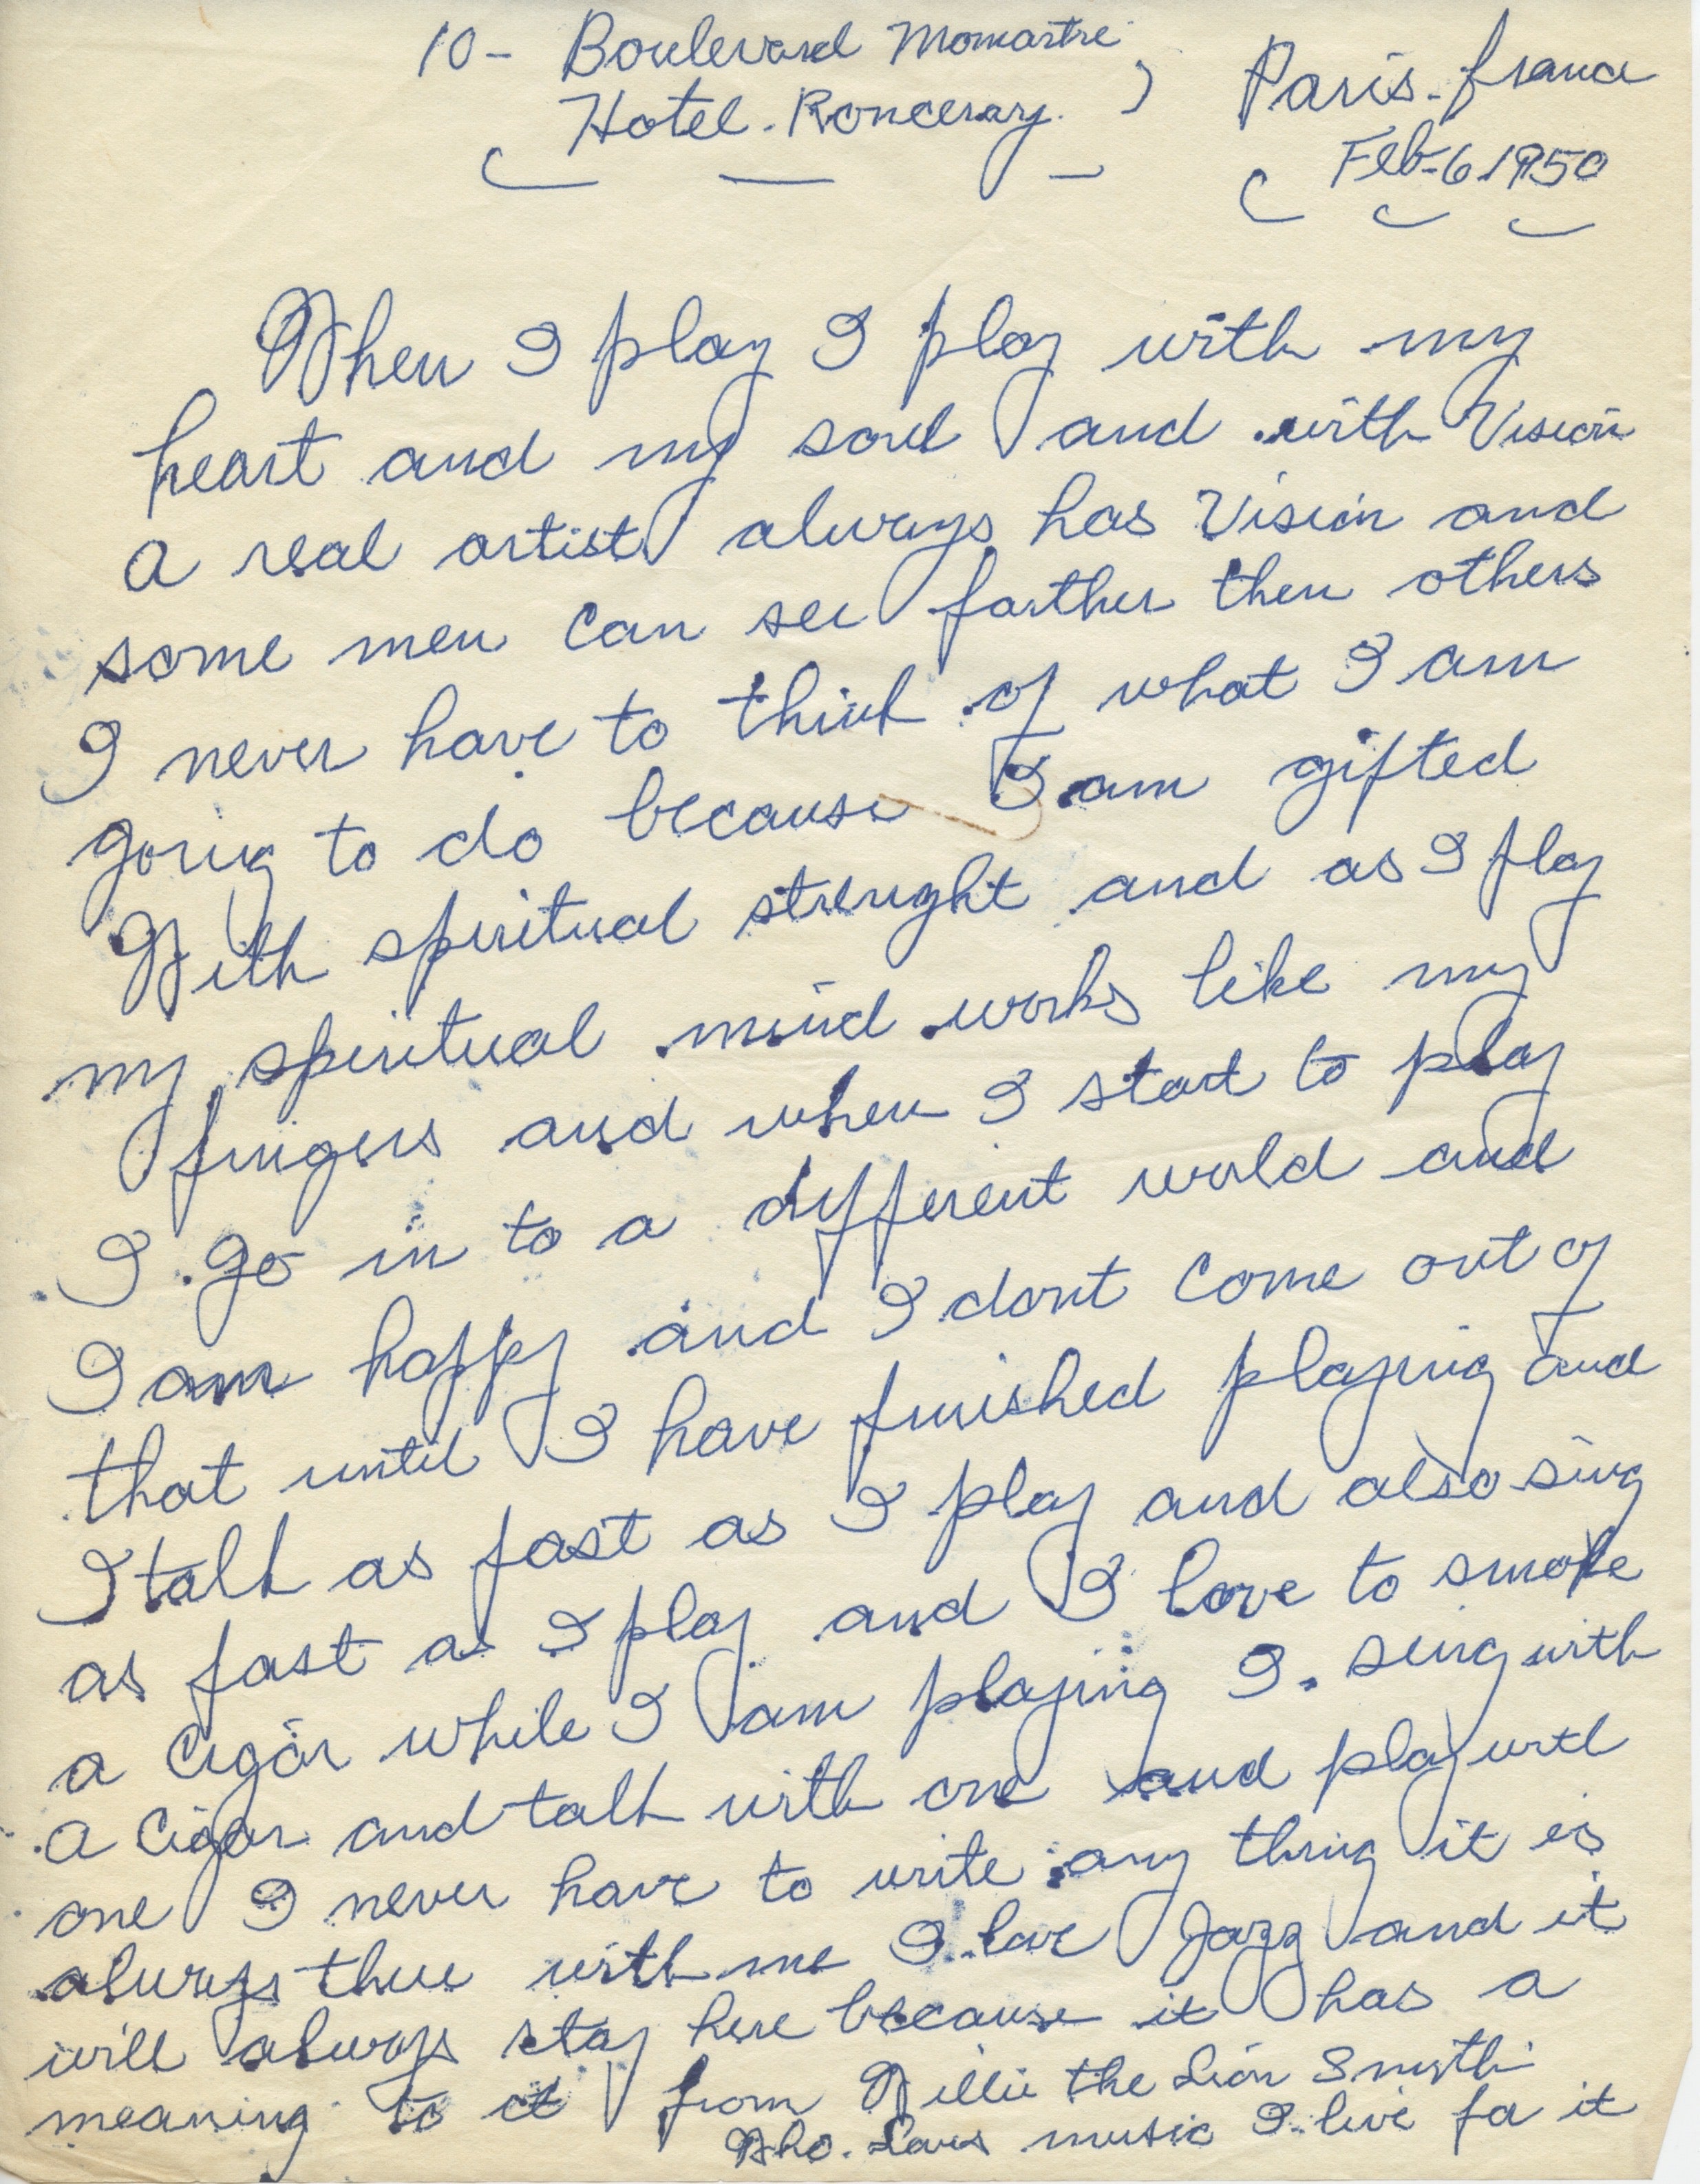 10 - Boulevard Momartre
Hotel. Ronceray. , Paris. France
Feb-6 1950
When I play I play with my
heart and my soul and with Vision
a real artist always has Vision and
some men can see farther then others
I never have to think of what I am
going to do because I am gifted
With spiritual strenght and as I play
my spiritual mind works like my
fingers and when I start to play
I go in to a different world and
I am happy and I dont come out of
that until I have finished playing and
I talk as fast as I play and also sing
as fast as I play and I love to smoke
a cigar while I am playing I sing with
a Cigar and talk with one and play with
one I never have to write any thing it is
always there with me I love Jazz and it
will always stay here because it has a
meaning to it from Willie the Lion Smith
Who. Loves music I live for it